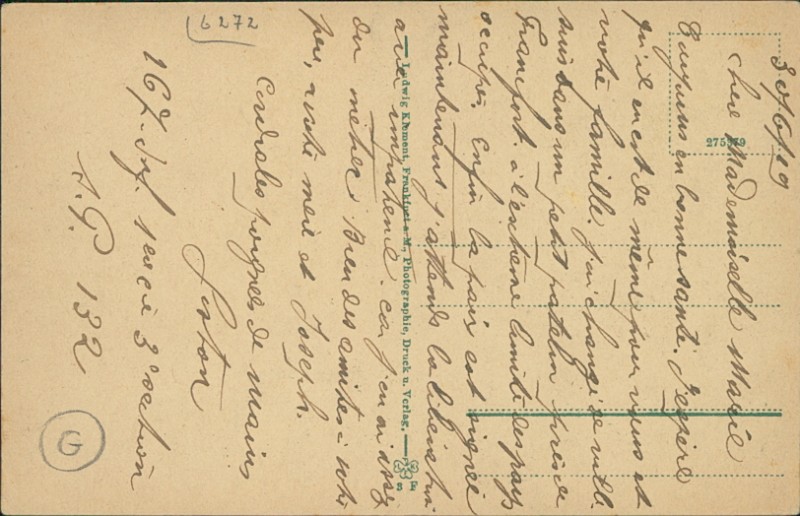 3 / 6 / 19
Chère Mademoiselle Marie
Toujours en bonne santé. J'espère
qu'il en est de même pour vous et
votre famille. J'ai changé de ville.
suis dans un petit patelin près de
Francfort. à l'extême limite des pays
occupés. Enfin la paix est signée
maintenant j'attends la libération
avec impatience. car j'en ai assez
du métier. Bien des amities à votre
père, a votre mère et Joseph.
Cordiales poignées de mains
Gaston
16e
3e section
S.P. 132
6272
G
275
Ludwig Klement, Frankfurt a. M., Photographie, Druck u. Verlag.